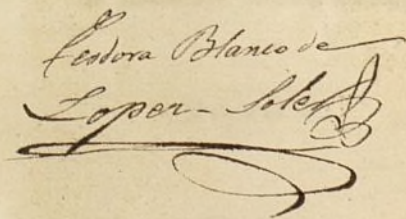 Teodora Blanco de
Loper - Soler